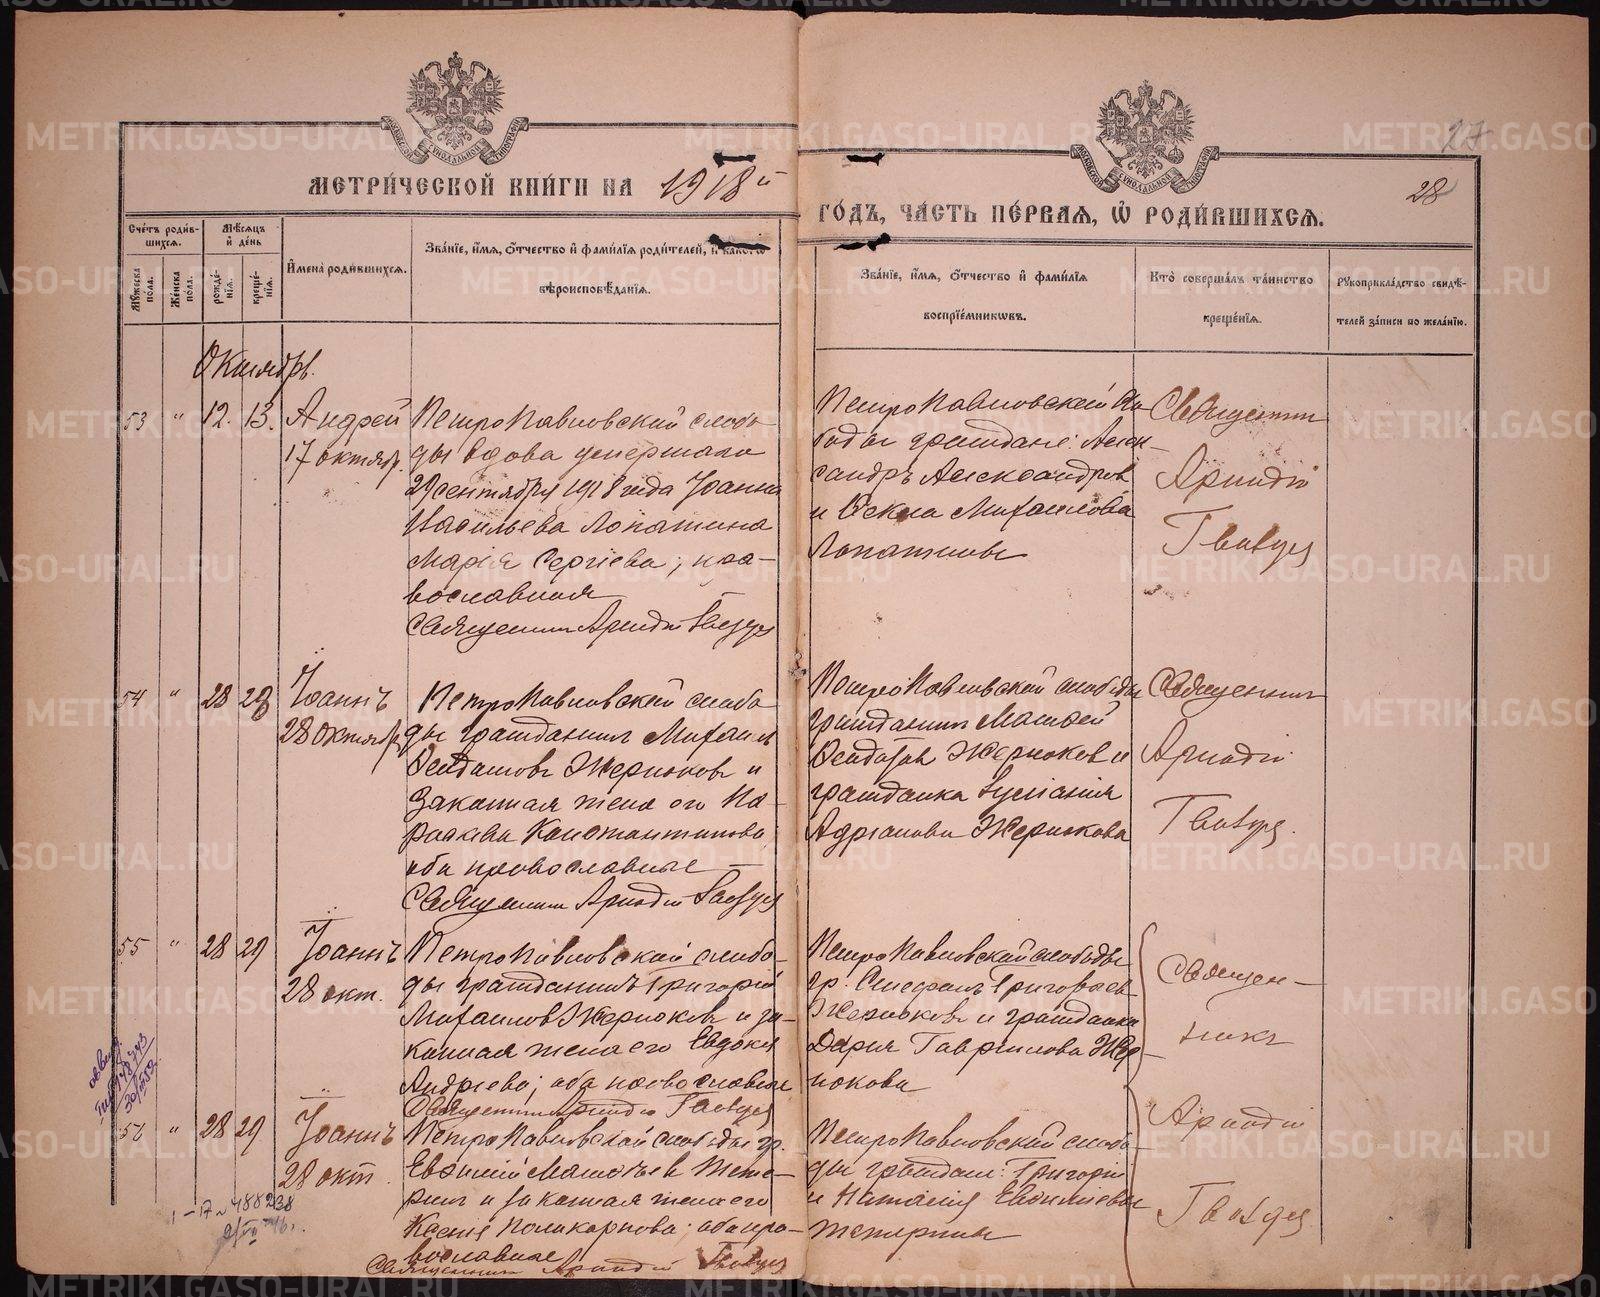 МЕТРИЧЕСКОЙ КНИГИ НА 1918й
ГОДЪ, ЧАСТЬ ПЕРВАЯ, Ѡ РОДИВШИХСЯ.
27
28
Счетъ родив-
шихся.
Мѣсяцъ
и день
Имена родившихся.
Званіе, имя, отчество и фамилія родителей, и какогѡ
вѣроисповѣданія.
Мужеска пола.
Женска пола.
рожде-
нія.
креще-
нія.
Званіе, имя, отчество и фамилія
воспріемникѡвъ.
Кто совершалъ таинство
крещенія.
Рукоприкладство свидѣ-
телей записи по желанію.
Октябрь.
53 " 12. 13. Андрей
17 октябр.
Петропавловской слобо
ды вдова умершаго
29 сентября 1918 года Іоанна
Васильева Лопатина
Марія Сергіева; пра-
вославная
Священникъ Аркадій
Петропавловской сло
боды граждане: Алек-
сандръ Александров
и Михаилова
Лопатины
Священник
Аркадій
54 " 28 28 Іоаннъ
28 октября
Петропавловской слобо
ды гражданинъ Михаилъ
Жернаковъ и
законная жена его Па-
раскева Константинова
оба православные
Священникъ Аркадій
Петропавловской слободы
гражданинъ Матфей
Жернаков и
гражданка
Адріанова Жернакова
Священникъ
Аркадій
55 " 28 29 Іоаннъ
28 окт.
Петропавловской слобо-
ды гражданинъ Григорій
Михаилов Жернаковъ и за-
конная жена его Евдокія
Андреева; оба православные
Священникъ Аркадій
Петропавловской слободы
гр. Стефанъ Григорьев
Жернаковъ и гражданка
Дарья Гавриилова Жер-
накова
Священ-
никъ
56 " 28 29 Іоаннъ
28 окт.
Петропавловской слободы гр.
Евѳимій Матѳеев Тете-
рин и законная жена его
Ксенія Поликарпова; оба пра-
вославные
Священникъ Аркадій
Петропавловской слобо-
ды граждан: Григорій
и Наталія Евѳиміевы
Тетерины
Аркадій
488238
METRIKI.GASO-URAL.RU